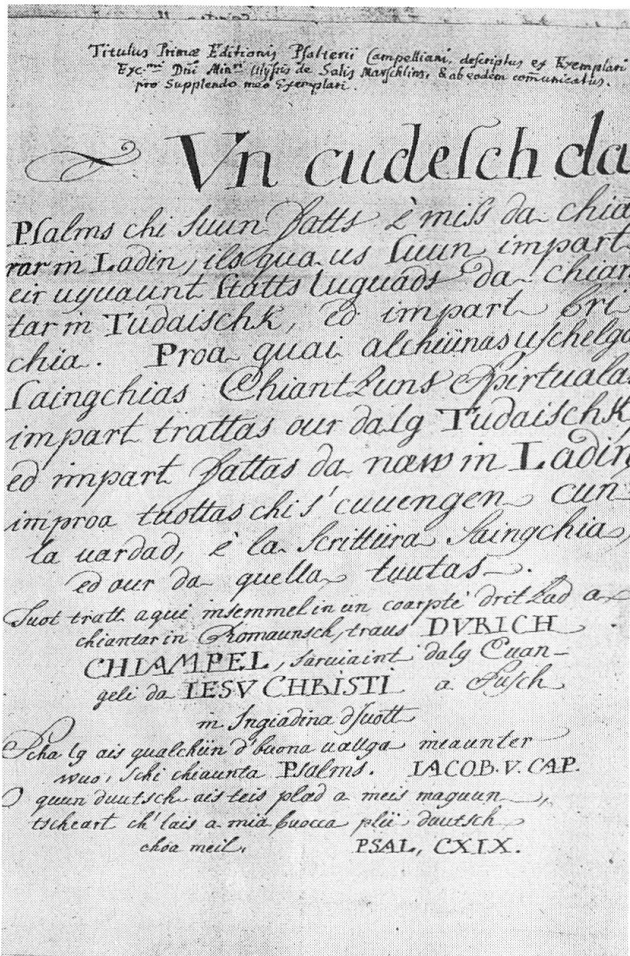 Titulus Primæ Editionis Psalterii Campelliani, descriptus ex Exemplari
Exc.mi Dni Min.ri Ulyssis de Salis Marschlins, & ab eodem comunicatus.
pro Supplendo meo Exemplari.
Vn cudesch da
Psalms chi suun fatts è miss da chia
rar in Ladin, ils qua us suun impart
eir uyuaunt statts luguads da chian
tar in Tudaischk, ed impart bri
chia. Proa quai alchiünas uschelgo
saingchias Chiantzuns Spirtualas
impart trattas our dalg Tudaischk
ed impart fattas da nœw in Ladin
improa tuottas chi s' cuuengen cun
la uardad, è la Scrittüra Saingchia,
ed our da quella tuutas.
Suot tratt aqui insemmel in un coarp è dritzad a
chiantar in Romaunsch, traus DVRICH
CHIAMPEL, saruiaint dalg Euan-
geli da IESV CHRISTI a Susch
in Ingiadina dsuott
Scha lg ais qualchiün d'buona uœlga miaunter
wuo, schi chiaunta Psalms. IACOB. V. CAP.
O quun duutsch ais teis plæd a meis maguun,
tscheart ch' lais a mia buocca plü duutsch
choa meil. PSAL, CXIX.